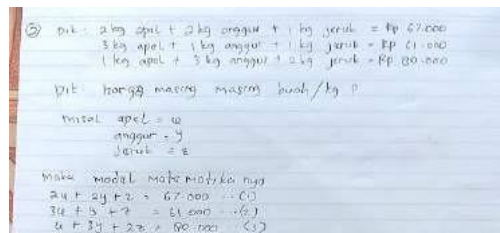 ③ Dik : 2 kg apel + 2 kg anggur + 1 kg jeruk = Rp 67.000
3 kg apel + 1 kg anggur + 1 kg jeruk = Rp 61.000
1 kg apel + 3 kg anggur + 2 kg jeruk = Rp 80.000
Dit : harga masing masing buah/kg ?
misal apel = u
anggur = y
jeruk = z
maka modal matematika nya
2u + 2y + z = 67.000 ...(1)
3u + y + z = 61.000 ...(2)
u + 3y + 2z = 80.000 ...(3)